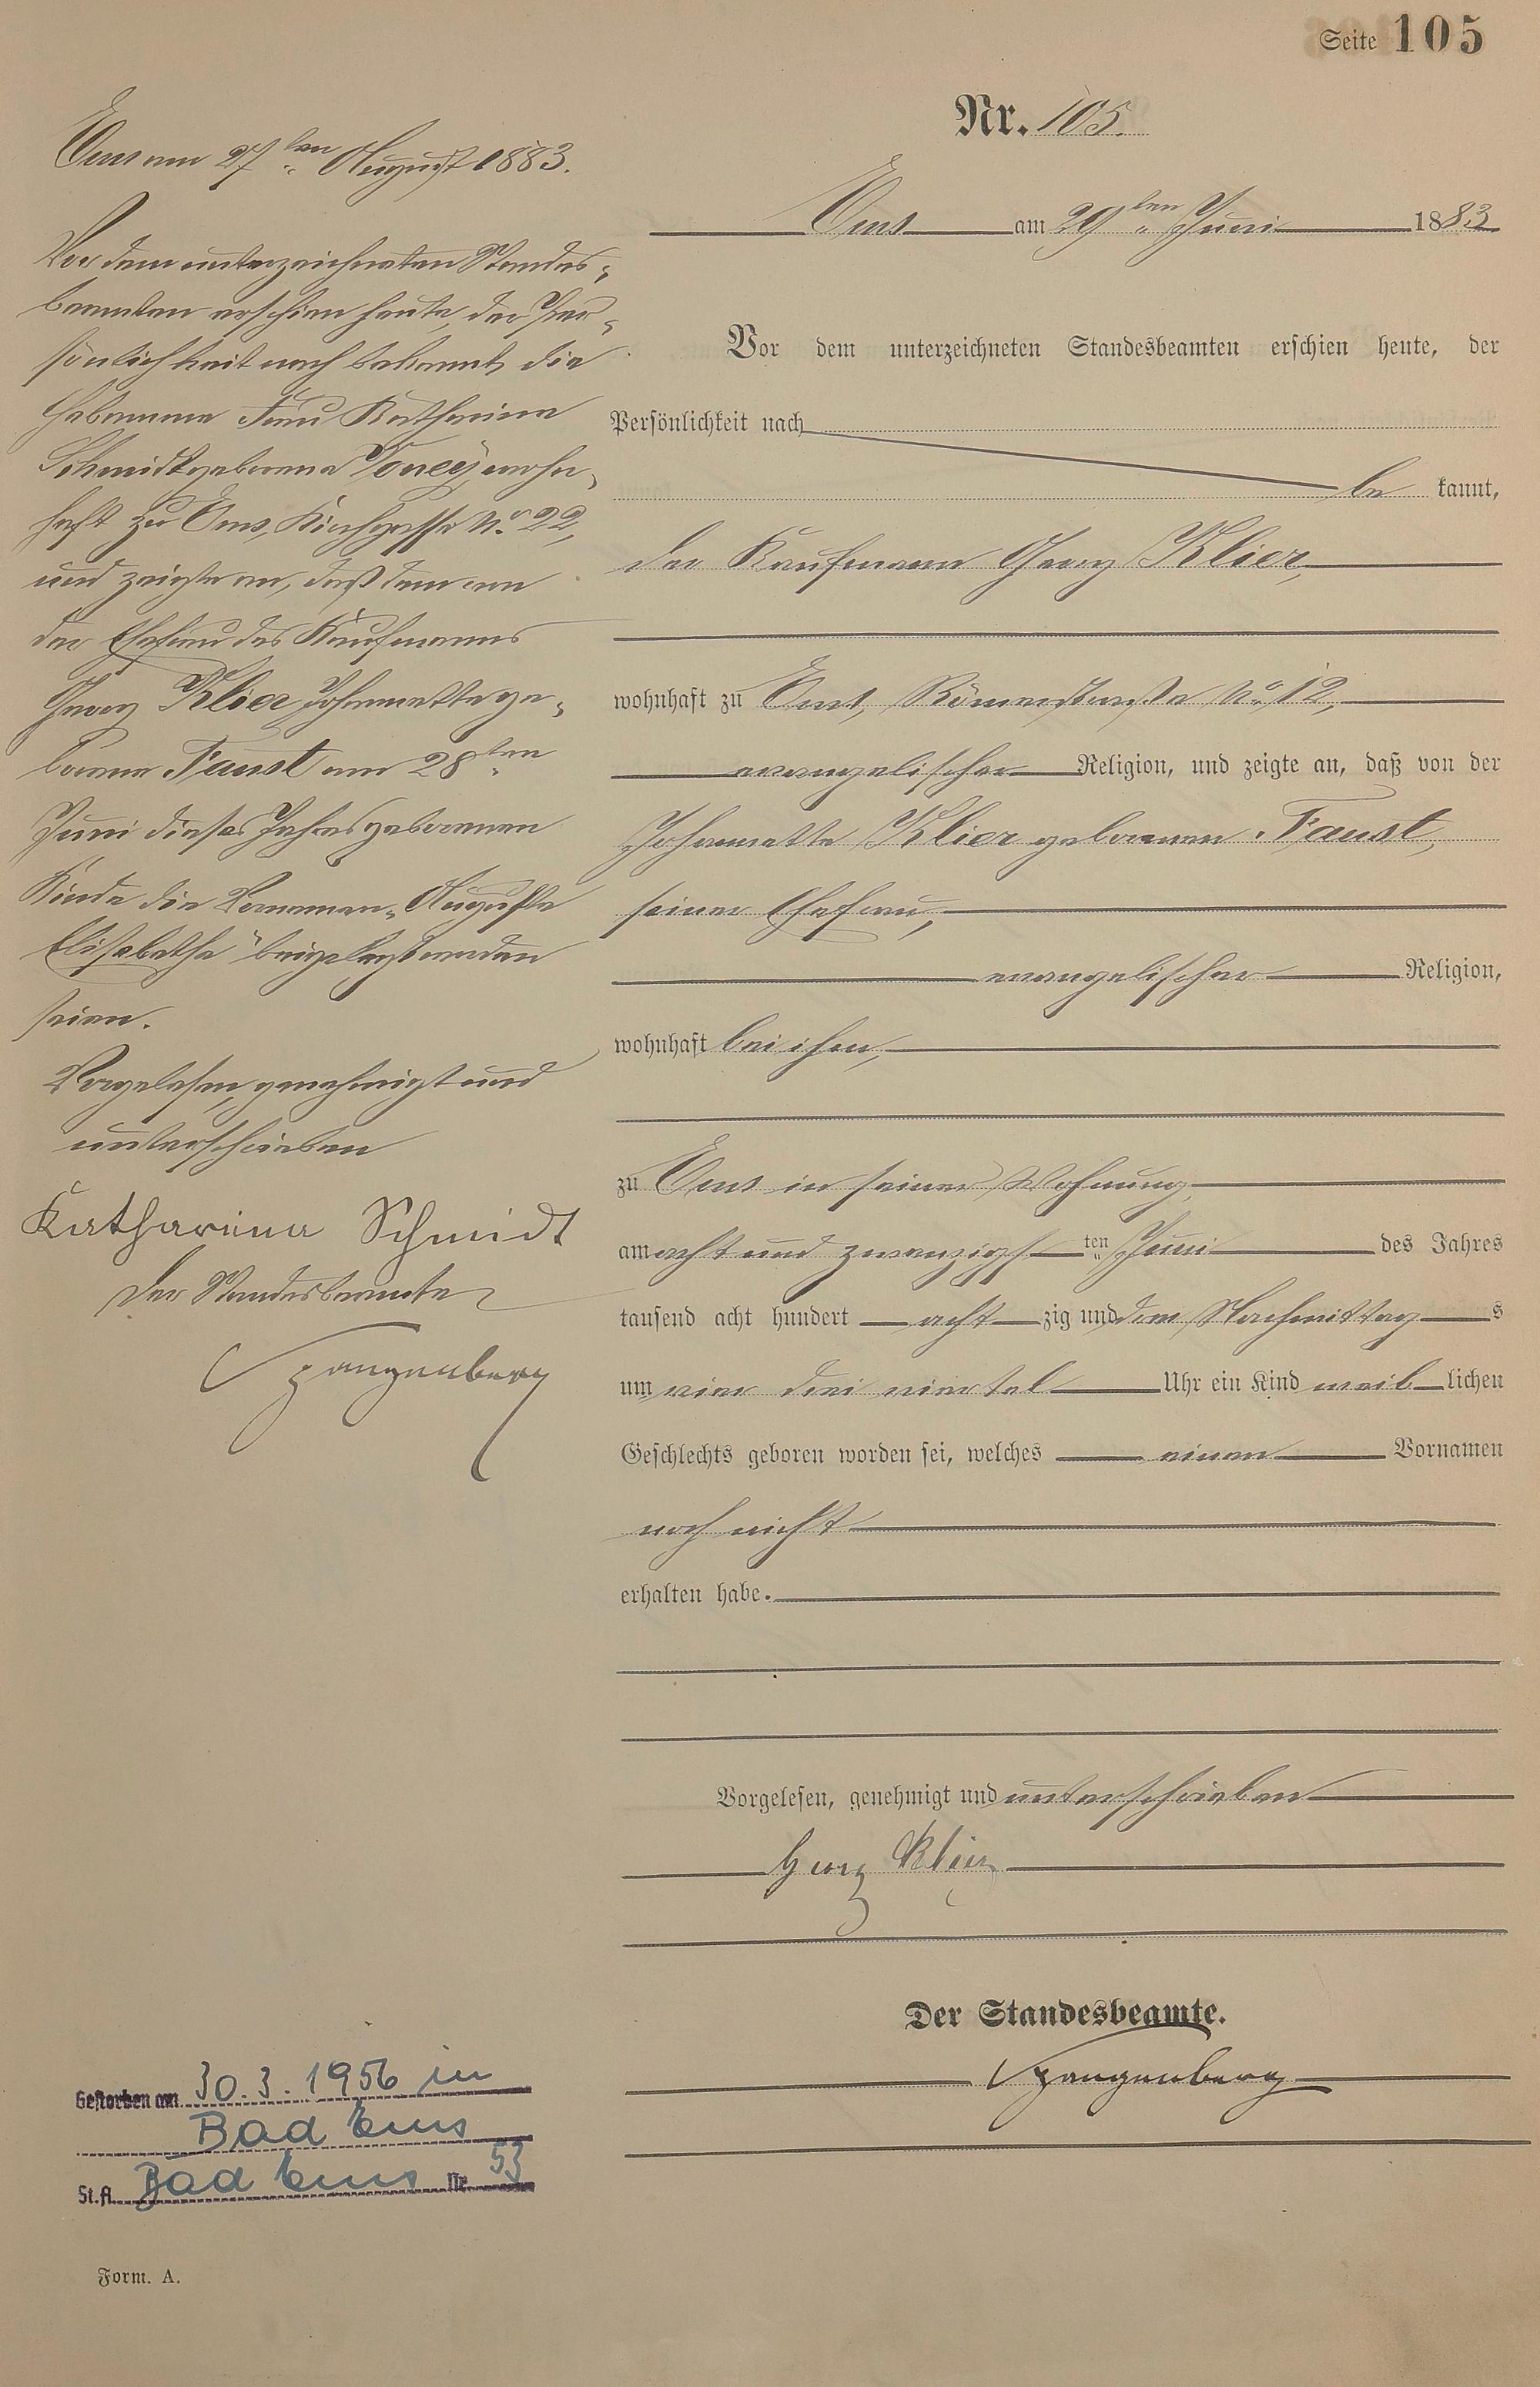 Seite 105
Nr. 105.
Ems am 29ten Juni 1883
Vor dem unterzeichneten Standesbeamten erschien heute, der
Persönlichkeit nach
be kannt,
der Kaufmann Georg Klier,
wohnhaft zu Ems, Römerstraße No. 12,
evangelischer Religion, und zeigte an, daß von der
Johannette Klier geborenen Faust,
seiner Ehefrau,
evangelischer Religion,
wohnhaft bei ihm,
zu Ems in seiner Wohnung,
am acht und zwanzigsten Juni des Jahres
tausend acht hundert achtzig und drei Nachmittags
um vier drei viertel Uhr ein Kind weiblichen
Geschlechts geboren worden sei, welches einen Vornamen
noch nicht
erhalten habe.
Vorgelesen, genehmigt und unterschrieben
Georg Klier
Der Standesbeamte.
Spangenberg
Ems am 27ten August 1883.
Vor dem unterzeichneten Standes-
beamten erschien heute, der Per-
sönlichkeit nach bekannt, die
Hebamme Frau Katharina
Schmidt geborene Toney, wohn-
haft zu Ems, Kirchgasse No. 22,
und zeigte an, daß dem von
der Ehefrau des Kaufmanns
Georg Klier Johannette ge-
borene Faust am 28ten
Juni dieses Jahres geborenen
Kinde die Vornamen „Auguste
Elisabetha" beigelegt worden
seien.
Vorgelesen, genehmigt und
unterschrieben
Katharina Schmidt
Der Standesbeamte
Spangenberg
Gestorben am 30.3.1956 in
Bad Ems
St.A. Bad Ems Nr. 53
Form. A.